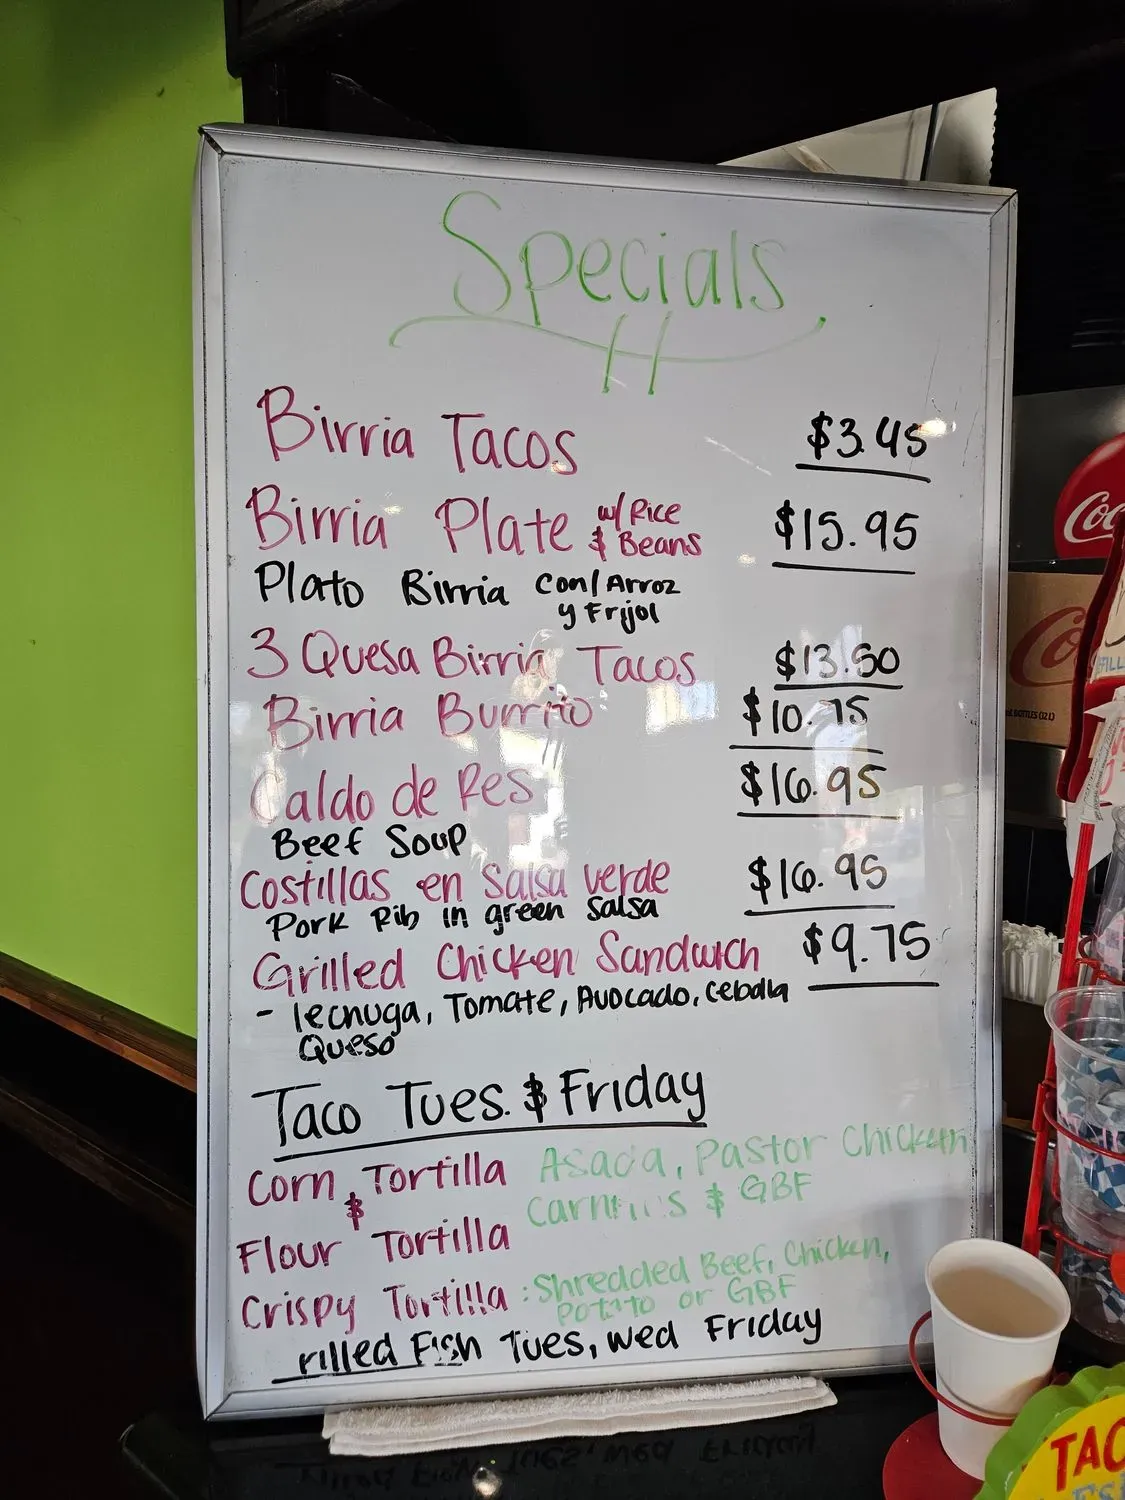 Specials
Birria Tacos $3.45
Birria Plate w/ Rice $15.95
& Beans
Plato Birria con/Arroz
y Frijol
3 Quesa Birria Tacos $13.50
Birria Burrito $10.75
Caldo de Res $16.95
Beef Soup
Costillas en Salsa verde $16.95
Pork Rib in green Salsa
Grilled Chicken Sandwich $9.75
- lechuga, Tomate, Avocado, cebolla
Queso
Taco Tues. & Friday
Corn Tortilla Asada, Pastor Chicken
& Carnitas & GBF
Flour Tortilla
Crispy Tortilla : Shredded Beef, Chicken,
Potato or GBF
rilled Fish Tues, Wed Friday
Coc
Co
TAC